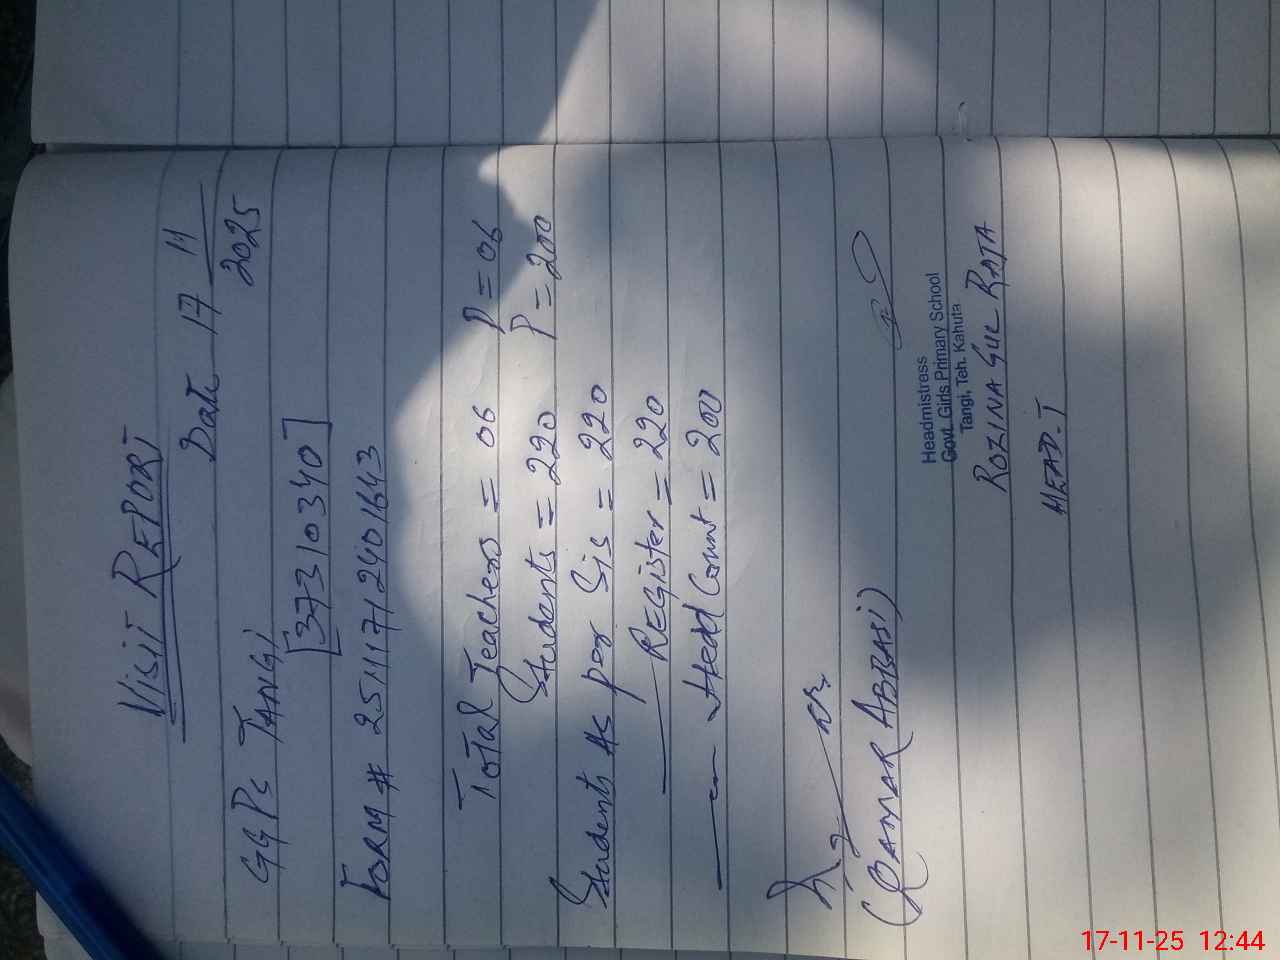 VISIT REPORT
Date 17 11
2025
GGPS TANGI
[37310340]
FORM # 25111712401643
Total Teachers = 06 P = 06
Students = 220 P = 200
Students As per Sis = 220
REGister = 220
Head Count = 200
(QAMAR ABBASI)
Headmistress
Govt. Girls Primary School
Tangi, Teh. Kahuta
ROZINA GUL RAJA
HEAD.T
17-11-25 12:44